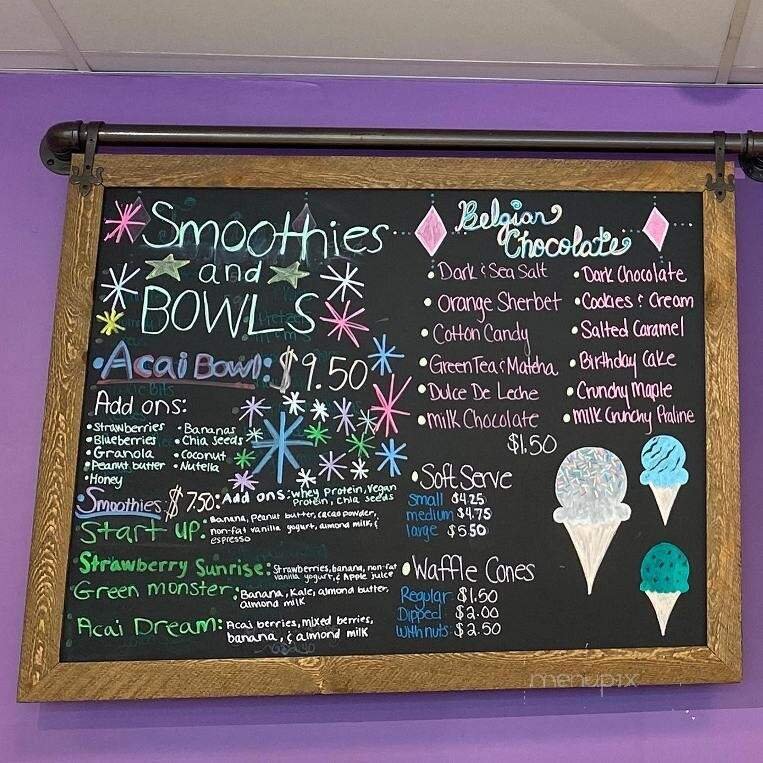 Smoothies
and
BOWLS
• Acai Bowl: $9.50
Add ons:
• Strawberries • Bananas
• Blueberries • Chia seeds
• Granola • Coconut
• Peanut butter • Nutella
• Honey
Smoothies $7.50: Add ons: Whey Protein, Vegan
Protein, Chia seeds
Start up: Banana, Peanut butter, cacao powder,
non-fat vanilla yogurt, almond milk, &
espresso
Strawberry Sunrise: Strawberries, banana, non-fat
vanilla yogurt, & Apple juice
Green monster: Banana, Kale, almond butter,
almond milk
Acai Dream: Acai berries, mixed berries,
banana, & almond milk
Belgian
Chocolate
• Dark & Sea Salt • Dark Chocolate
• Orange Sherbet • Cookies & Cream
• Cotton Candy • Salted Caramel
• Green Tea & Matcha • Birthday Cake
• Dulce De Leche • Crunchy Maple
• milk Chocolate • Milk Crunchy Praline
$1.50
• Soft Serve
Small $4.25
medium $4.75
large $5.50
• Waffle Cones
Regular $1.50
Dipped $2.00
With nuts $2.50
menupix